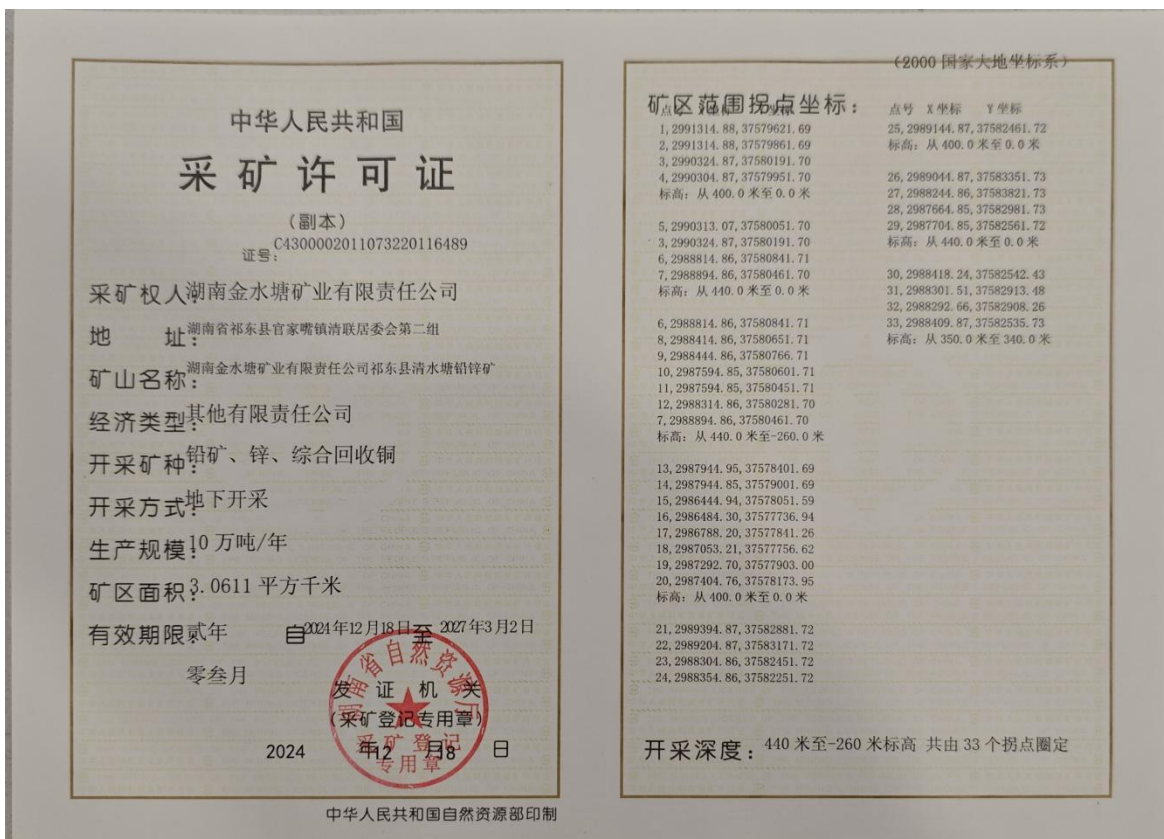 中华人民共和国
采矿许可证
(副本)
证号: C4300002011073220116489
采矿权人: 湖南金水塘矿业有限责任公司
地 址: 湖南省祁东县官家嘴镇清联居委会第二组
矿山名称: 湖南金水塘矿业有限责任公司祁东县清水塘铅锌矿
经济类型: 其他有限责任公司
开采矿种: 铅矿、锌、综合回收铜
开采方式: 地下开采
生产规模: 10 万吨/年
矿区面积: 3.0611 平方千米
有效期限: 贰年 自 2024年12月18日 至 2027年3月2日
零叁月
发证机关
(采矿登记专用章)
湖南省自然资源厅
采矿登记
专用章
2024 年12 月18 日
中华人民共和国自然资源部印制
(2000 国家大地坐标系)
矿区范围拐点坐标:
点号 X坐标 Y坐标
1, 2991314.88, 37579621.69
2, 2991314.88, 37579861.69
3, 2990324.87, 37580191.70
4, 2990304.87, 37579951.70
标高: 从 400.0 米至 0.0 米
5, 2990313.07, 37580051.70
3, 2990324.87, 37580191.70
6, 2988814.86, 37580841.71
7, 2988894.86, 37580461.70
标高: 从 440.0 米至 0.0 米
6, 2988814.86, 37580841.71
8, 2988414.86, 37580651.71
9, 2988444.86, 37580766.71
10, 2987594.85, 37580601.71
11, 2987594.85, 37580451.71
12, 2988314.86, 37580281.70
7, 2988894.86, 37580461.70
标高: 从 440.0 米至-260.0 米
13, 2987944.95, 37578401.69
14, 2987944.85, 37579001.69
15, 2986444.94, 37578051.59
16, 2986484.30, 37577736.94
17, 2986788.20, 37577841.26
18, 2987053.21, 37577756.62
19, 2987292.70, 37577903.00
20, 2987404.76, 37578173.95
标高: 从 400.0 米至 0.0 米
21, 2989394.87, 37582881.72
22, 2989204.87, 37583171.72
23, 2988304.86, 37582451.72
24, 2988354.86, 37582251.72
点号 X坐标 Y坐标
25, 2989144.87, 37582461.72
标高: 从 400.0 米至 0.0 米
26, 2989044.87, 37583351.73
27, 2988244.86, 37583821.73
28, 2987664.85, 37582981.73
29, 2987704.85, 37582561.72
标高: 从 440.0 米至 0.0 米
30, 2988418.24, 37582542.43
31, 2988301.51, 37582913.48
32, 2988292.66, 37582908.26
33, 2988409.87, 37582535.73
标高: 从 350.0 米至 340.0 米
开采深度: 440 米至-260 米标高 共由 33 个拐点圈定